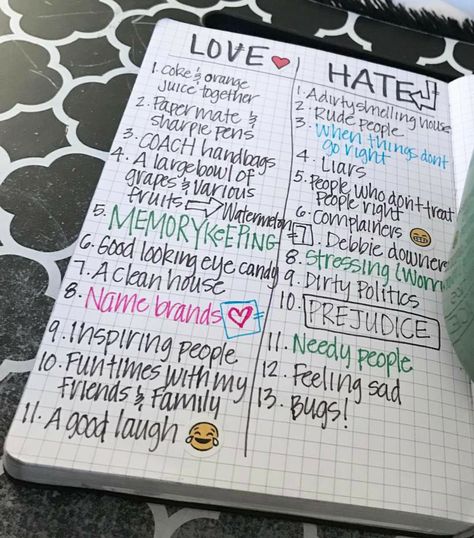 LOVE
1. Coke & orange
juice together
2. Papermate &
sharpie pens
3. COACH handbags
4. A large bowl of
grapes & various
fruits Watermelon
5. MEMORYKEEPING
6. Good looking eye candy
7. A clean house
8. Name brands
9. Inspiring people
10. Fun times with my
friends & Family
11. A good laugh
HATE
1. A dirty smelling house
2. Rude people
3. When things dont
go right
4. Liars
5. People who dont treat
People right
6. Complainers
7. Debbie downers
8. Stressing (Worry
9. Dirty Politics
10. PREJUDICE
11. Needy people
12. Feeling sad
13. Bugs!